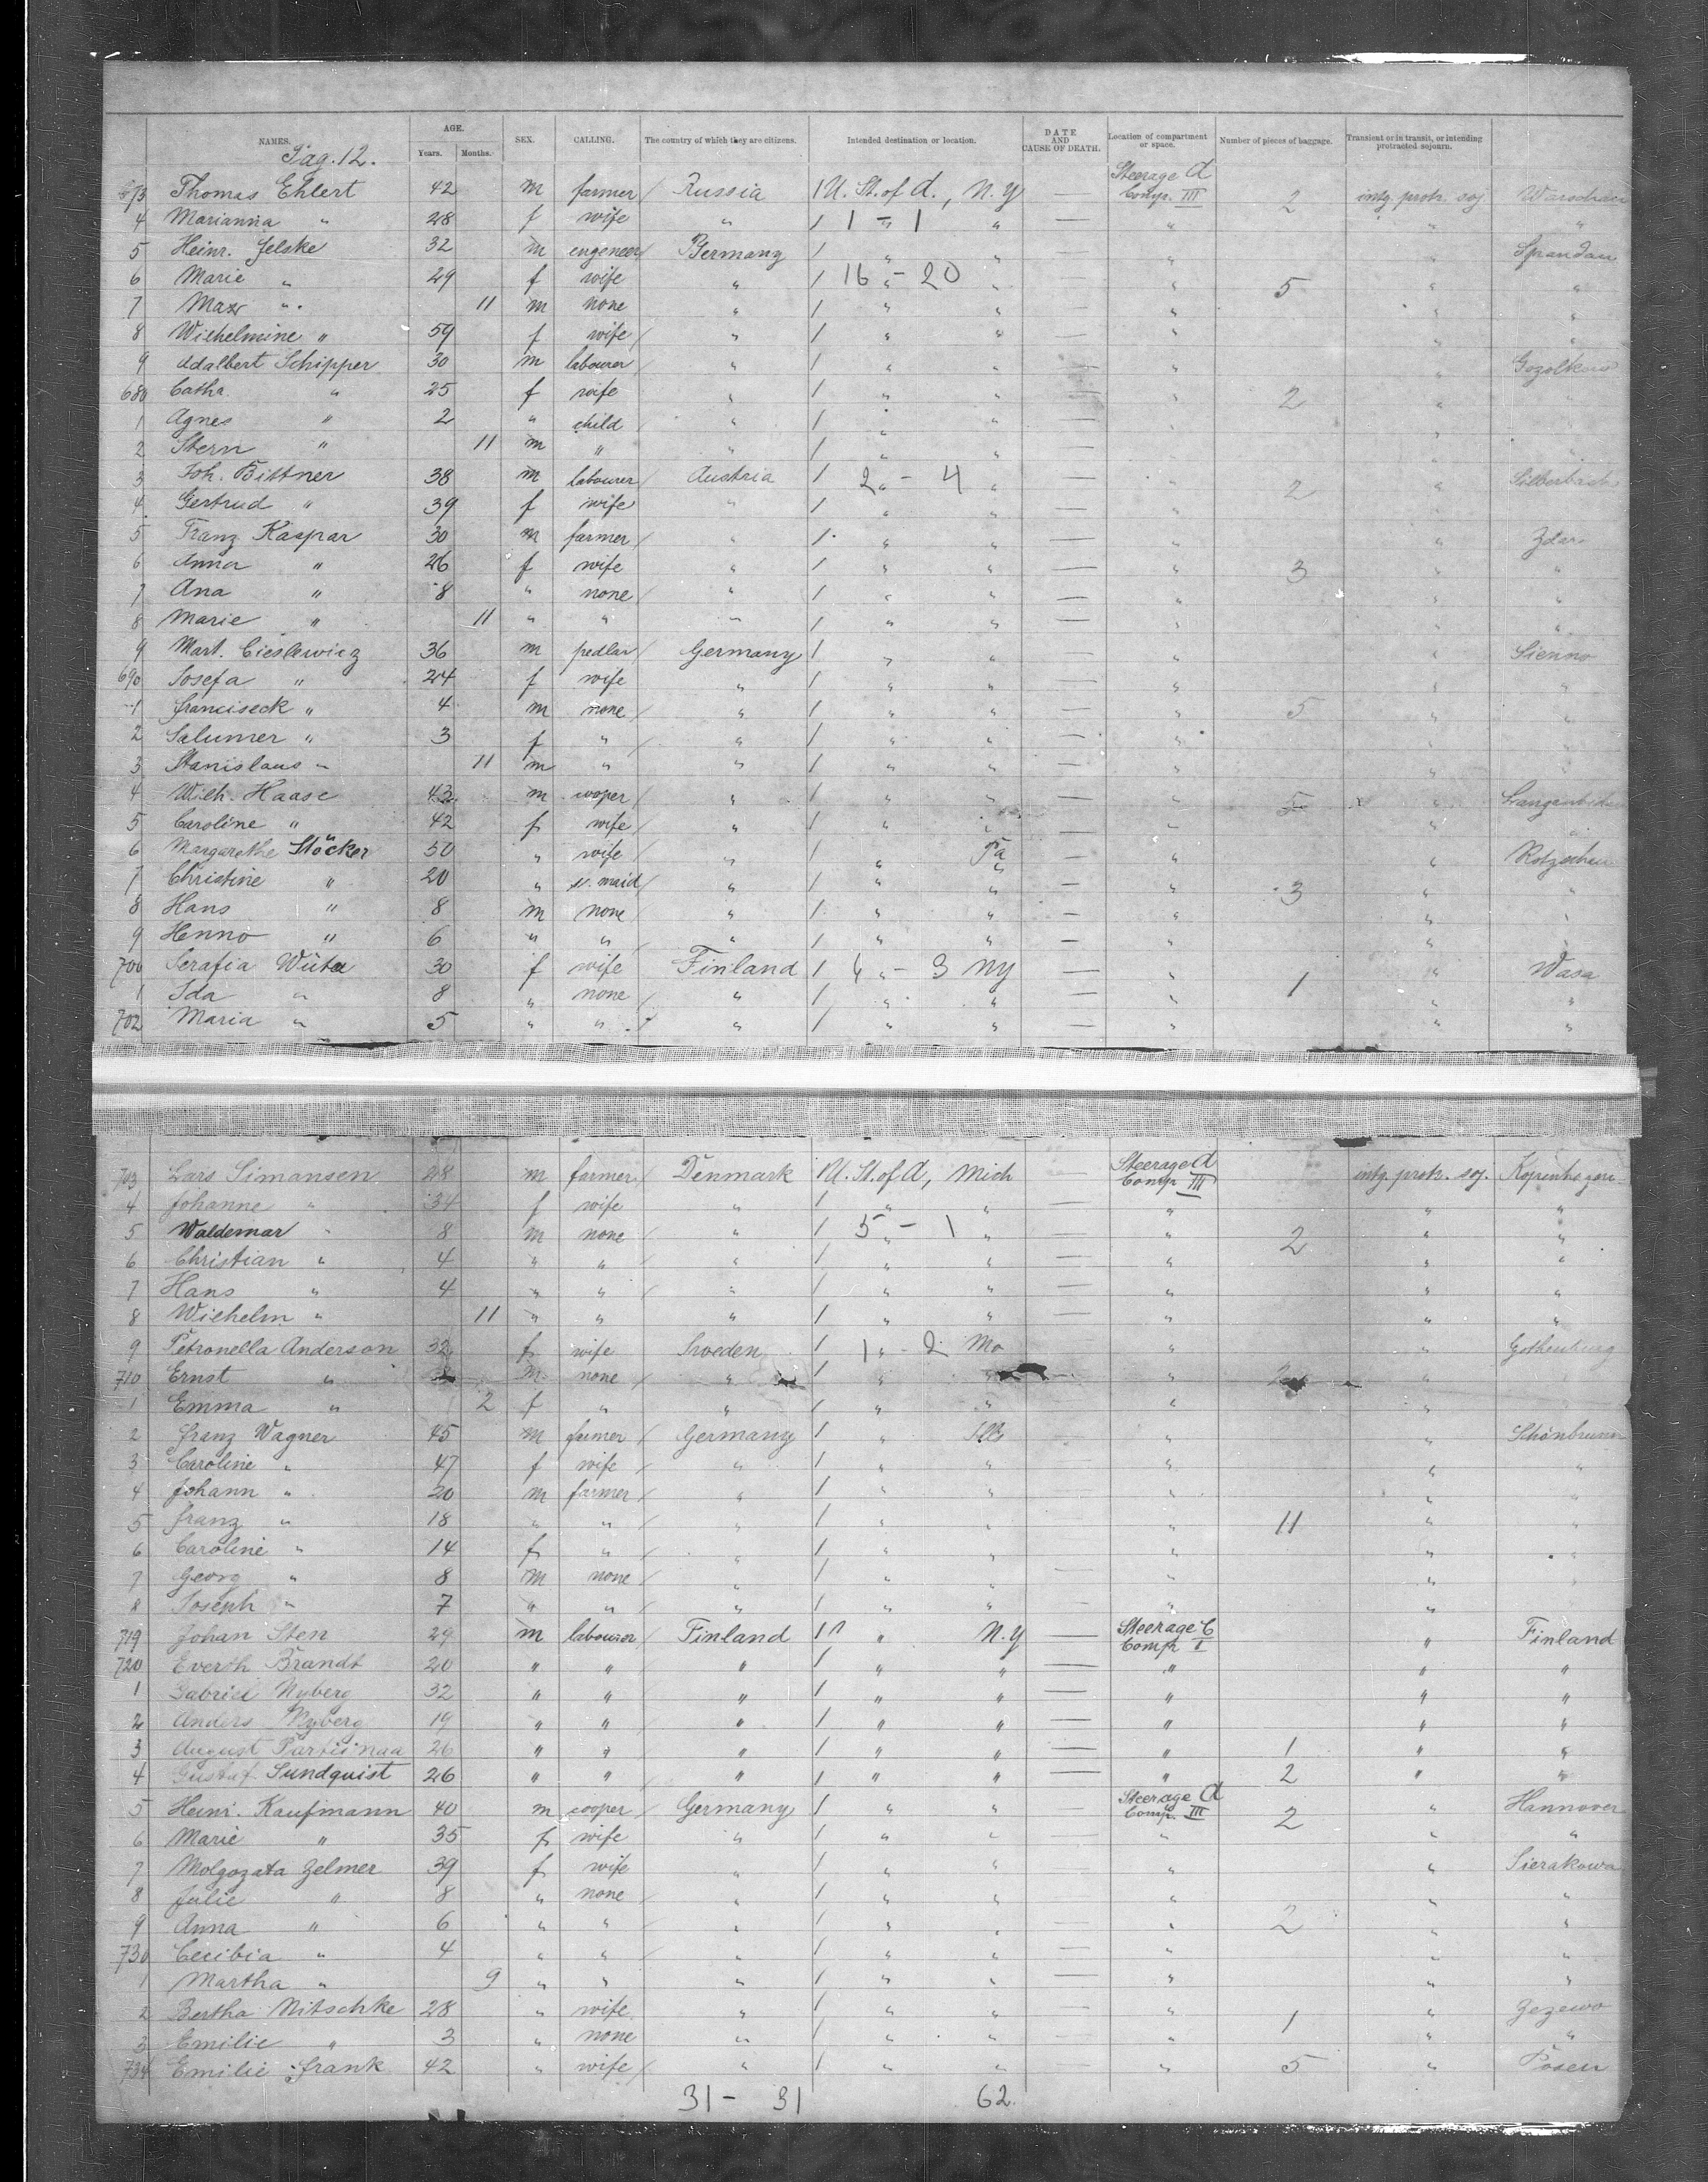 NAMES. AGE. SEX. CALLING. The country of which they are citizens. Intended destination or location. DATE AND CAUSE OF DEATH. Location of compartment or space. Number of pieces of baggage. Transient or in transit, or intending protracted sojourn.
Years. Months.
Pag. 12.
673 Thomas Ehlert 42 m farmer / Russia 1 U. St. of A., N.Y — Steerage A Comp. III 2 intg. protr. soj Warschau
4 Marianna " 28 f wife " 1 1 - 1 " — " " "
5 Heinr. Jelske 32 m engeneer / Germany 1 " " — " " Spandau
6 Marie " 29 f wife " 1 16 " - 20 " — " 5 " "
7 Max " 11 m none " 1 " " — " " "
8 Wilhelmine " 59 f wife / " 1 " " — " " "
9 Adalbert Schipper 30 m labourer " 1 " " — " "
680 Catha " 25 f wife " 1 " " — " 2 "
1 Agnes " 2 " child " 1 " " — " "
2 Stern " 11 m " " 1 " " — " "
3 Joh. Bittner 38 m labourer / Austria 1 2 " - 4 " — " 2 " Silberbach
4 Gertrud " 39 f wife " 1 " " — " "
5 Franz Kaspar 30 m farmer / " 1 " " — " " Zdar
6 Anna " 26 f wife " 1 " " — " 3 " "
7 Ana " 8 " none / " 1 " " — " " "
8 Marie " 11 " " " 1 " " — " " "
9 Mart. Cieslewicz 36 m pedlar / Germany 1 " " — " " Sienno
690 Josefa " 24 f wife " 1 " " — " " "
1 Franciseck " 4 m none / " 1 " " — " 5 " "
2 Salumer " 3 f " / " 1 " " — " " "
3 Stanislaus " 11 m " / " 1 " " — " " "
4 Wilh. Haase 43 m cooper / " 1 " " — " 5 x "
5 Caroline " 42 f wife / " 1 " " — " " "
6 Margarethe Stöcker 50 " wife " 1 " Pa — " "
7 Christine " 20 " maid / " 1 " " — " 3 " "
8 Hans " 8 m none / " 1 " " — " " "
9 Henno " 6 " " " 1 " " — " " "
700 Serafia 30 f wife Finland 1 4 " - 3 NY — " 1 " Wasa
1 Ida " 8 " none / " 1 " " — " " "
702 Maria " 5 " " / " 1 " " — " " "
703 Lars Simansen 48 m farmer / Denmark 1 U. St. of A, Mich — Steerage A Comp. III intg. protr. soj. Kopenhagen
4 Johanne " 34 f wife " 1 " " — " " "
5 Waldemar " 8 m none / " 1 5 " - 1 " — " 2 " "
6 Christian " 4 " " " 1 " " — " " "
7 Hans " 4 " " " 1 " " — " " "
8 Wilhelm " 11 " " " 1 " " — " " "
9 Petronella Anderson 32 f wife Sweden 1 1 " - 2 Mo " " Gothenburg
710 Ernst " m none " 1 " " — " 2 "
1 Emma " 2 f " " 1 " " — " "
2 Franz Wagner 45 m farmer / Germany 1 " Ills — " " Schönbrunn
3 Caroline " 47 f wife / " 1 " " — " " "
4 Johann " 20 m farmer / " 1 " " " " "
5 Franz " 18 " " / " 1 " " " 11 " "
6 Caroline " 14 f " / " 1 " " " " "
7 Georg " 8 m none / " 1 " " — " " "
8 Joseph " 7 " " / " 1 " " — " "
719 Johan Sten 29 m labourer / Finland 1 " " N.Y — Steerage C Comp I " Finland
720 Everth Brandt 20 " " " 1 " " — " " "
1 Gabriel Nyberg 32 " " " 1 " " — " " "
2 Anders Nyberg 19 " " " 1 " " — " " "
3 August 26 " " " 1 " " — " 1 " "
4 Gustaf Sundquist 26 " " " 1 " " — " 2 " "
5 Heinr. Kaufmann 40 m cooper / Germany 1 " " — Steerage A Comp. III 2 " Hannover
6 Marie " 35 f wife " 1 " " — " " "
7 Molgozata Zelmer 39 f wife " 1 " " — " " Sierakowa
8 Julie " 8 " none / " 1 " " — " " "
9 Anna " 6 " " " 1 " " — " 2 " "
730 Cecibia " 4 " " / " 1 " " — " " "
1 Martha " 9 " " " 1 " " — " " "
2 Bertha Nitschke 28 " wife " 1 " " — " 1 " Gezewo
3 Emilie " 3 " none " 1 " " — " " "
734 Emilie Frank 42 " wife / " 1 " " — " 5 " Posen
31 - 31 62.